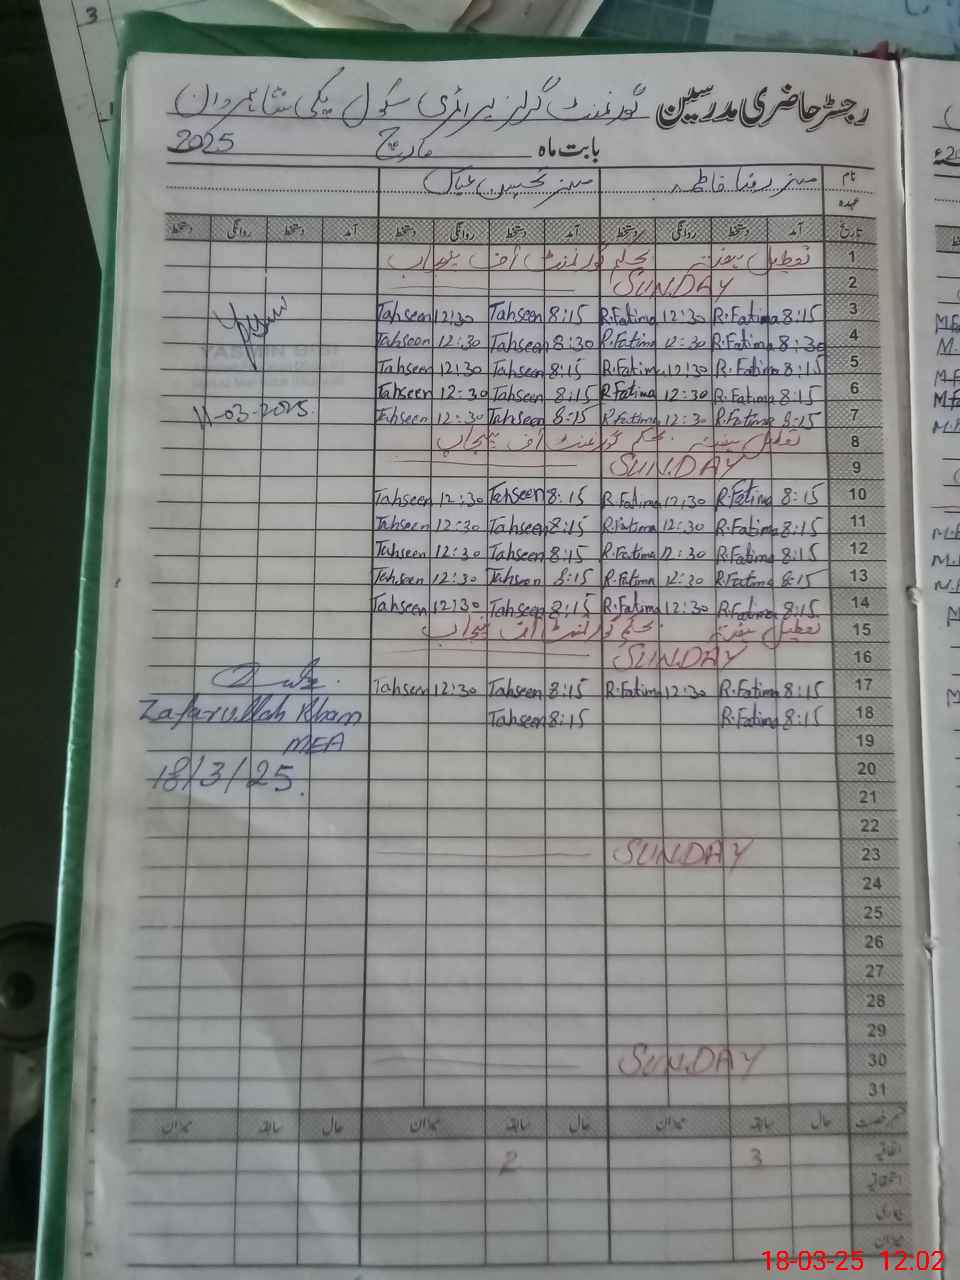 رجسٹر حاضری مدرسین گورنمنٹ گرلز پرائمری سکول پکی شاہ مردان
بابت ماہ مارچ 2025
نام مسز رضا فاطمہ مسز تحسین
عہدہ
تاریخ آمد دستخط روانگی دستخط آمد دستخط روانگی دستخط آمد دستخط روانگی دستخط
1 تعطیل ہفتہ بحکم گورنمنٹ آف پنجاب
2 SUNDAY
3 8:15 R.Fatima 12:30 R.Fatima 8:15 Tahseen 12:30 Tahseen
4 8:30 R.Fatima 12:30 R.Fatima 8:30 Tahseen 12:30 Tahseen
5 8:15 R.Fatima 12:30 R.Fatima 8:15 Tahseen 12:30 Tahseen
6 8:15 R.Fatima 12:30 R.Fatima 8:15 Tahseen 12:30 Tahseen
7 8:15 R.Fatima 12:30 R.Fatima 8:15 Tahseen 12:30 Tahseen
11-03-2025
8 تعطیل ہفتہ بحکم گورنمنٹ آف پنجاب
9 SUNDAY
10 8:15 R.Fatima 12:30 R.Fatima 8:15 Tahseen 12:30 Tahseen
11 8:15 R.Fatima 12:30 R.Fatima 8:15 Tahseen 12:30 Tahseen
12 8:15 R.Fatima 12:30 R.Fatima 8:15 Tahseen 12:30 Tahseen
13 8:15 R.Fatima 12:30 R.Fatima 8:15 Tahseen 12:30 Tahseen
14 8:15 R.Fatima 12:30 R.Fatima 8:15 Tahseen 12:30 Tahseen
15 تعطیل ہفتہ بحکم گورنمنٹ آف پنجاب
16 SUNDAY
17 8:15 R.Fatima 12:30 R.Fatima 8:15 Tahseen 12:30 Tahseen
18 8:15 R.Fatima 8:15 Tahseen
Zafarullah Khan
19 MEA
20 18/3/25.
21
22
23 SUNDAY
24
25
26
27
28
29
30 SUNDAY
31
قسم رخصت حال سابقہ میزان حال سابقہ میزان حال سابقہ میزان
اتفاقیہ 3 2
استحقاقیہ
بیماری
میزان
18-03-25 12:02